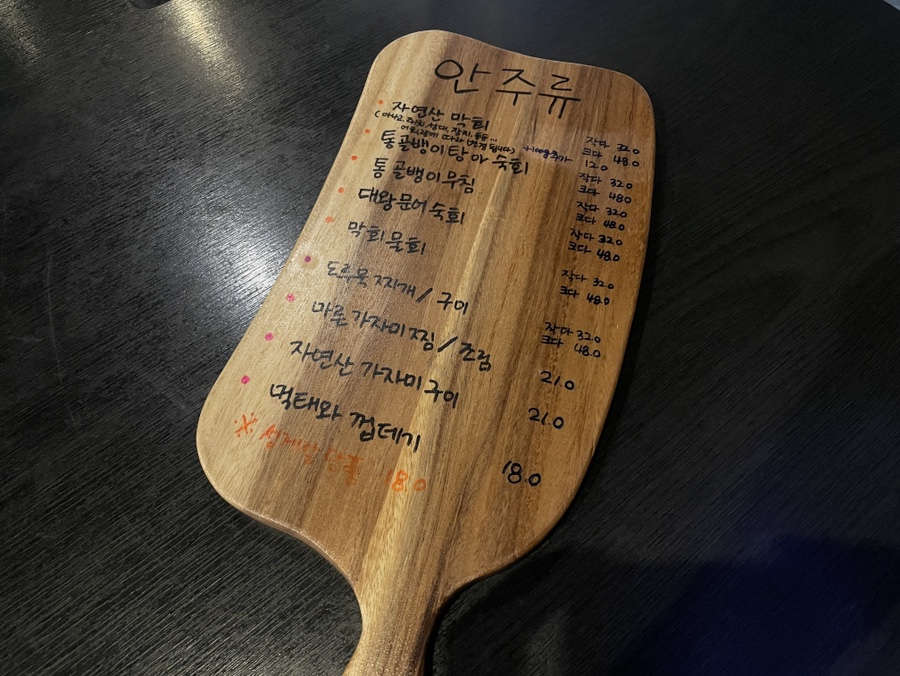 안주류
자연산 막회 작다 32.0
크다 48.0
어획(잡이)에 따라 변경 됩니다) 12.0
통골뱅이탕 or 숙회 작다 32.0
크다 48.0
통골뱅이무침 작다 32.0
크다 48.0
대왕문어숙회 작다 32.0
크다 48.0
막회물회 작다 32.0
크다 48.0
도루묵 찌개 / 구이 작다 32.0
크다 48.0
마른 가자미 찜 / 조림 21.0
자연산 가자미구이 21.0
먹태와 껍데기 18.0
※ 성게알 단품 18.0